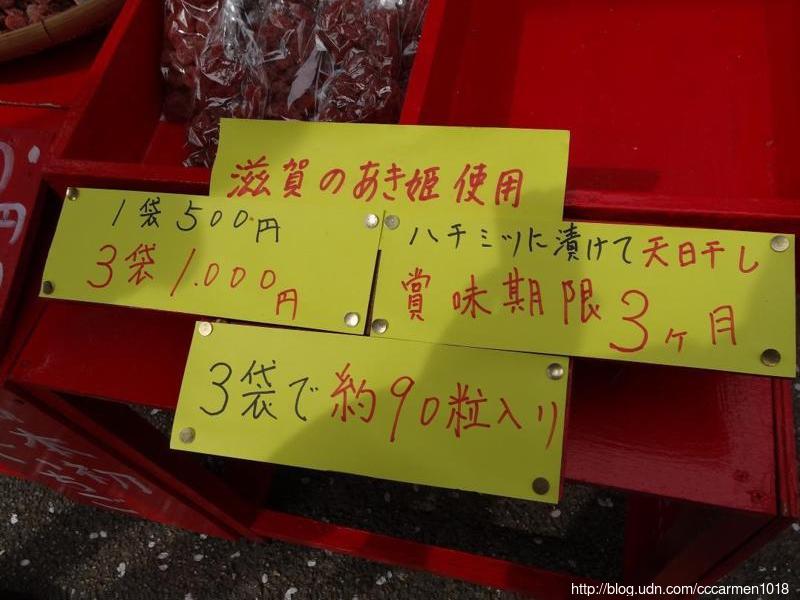 滋賀のあき姫使用
1袋500円
3袋1.000円
ハチミツに漬けて天日干し
賞味期限3ヶ月
3袋で約90粒入り
http://blog.udn.com/cccarmen1018